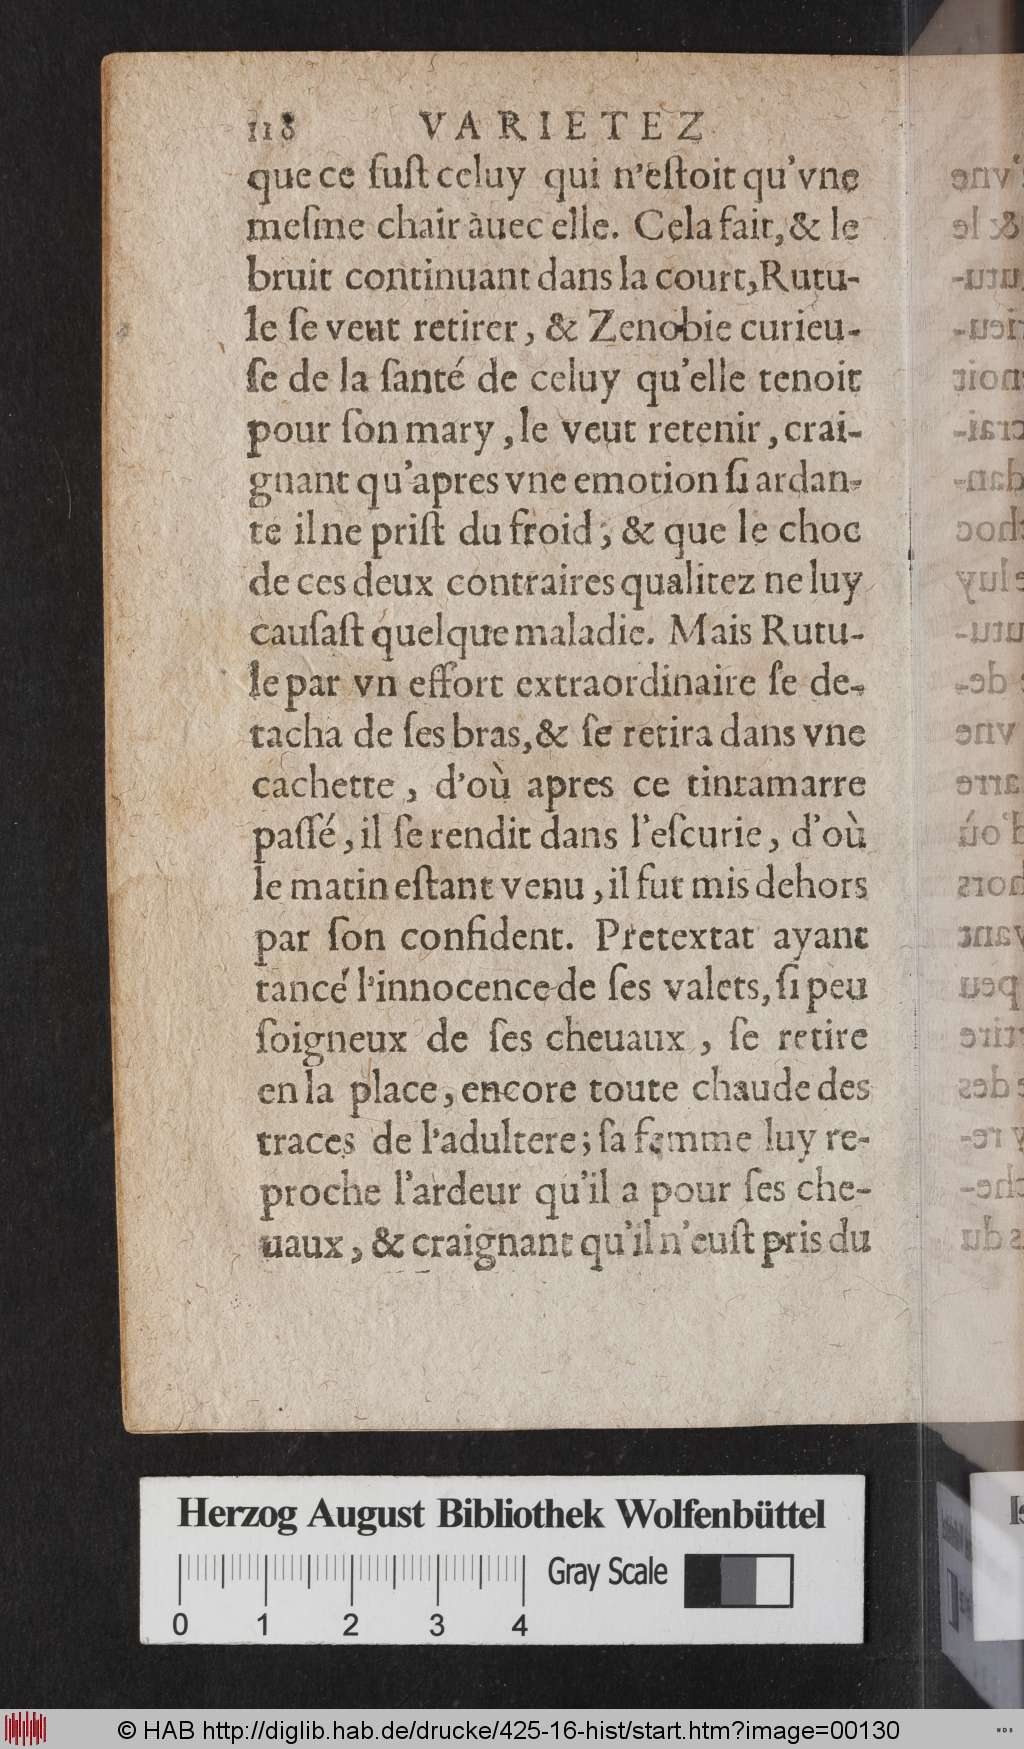 118 VARIETEZ
que ce fuſt celuy qui n'eſtoit qu'vne
meſme chair auec elle. Cela fait, & le
bruit continuant dans la court, Rutu-
le ſe veut retirer, & Zenobie curieu-
ſe de la ſanté de celuy qu'elle tenoit
pour ſon mary, le veut retenir, crai-
gnant qu'apres vne emotion ſi ardan-
te il ne priſt du froid; & que le choc
de ces deux contraires qualitez ne luy
cauſaſt quelque maladie. Mais Rutu-
le par vn effort extraordinaire ſe de-
tacha de ſes bras, & ſe retira dans vne
cachette, d'où apres ce tintamarre
paſſé, il ſe rendit dans l'eſcurie, d'où
le matin eſtant venu, il fut mis dehors
par ſon confident. Pretextat ayant
tancé l'innocence de ſes valets, ſi peu
ſoigneux de ſes cheuaux, ſe retire
en la place, encore toute chaude des
traces de l'adultere; ſa femme luy re-
proche l'ardeur qu'il a pour ſes che-
uaux, & craignant qu'il n'euſt pris du
Herzog August Bibliothek Wolfenbüttel
Gray Scale
0 1 2 3 4
© HAB http://diglib.hab.de/drucke/425-16-hist/start.htm?image=00130